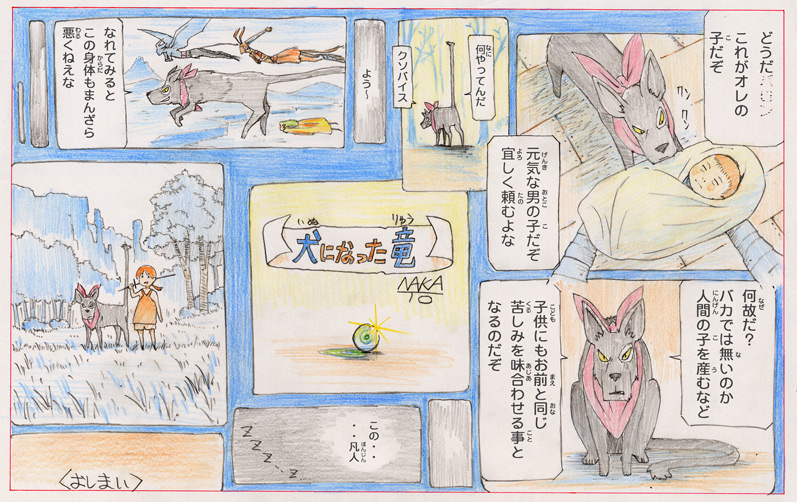 どうだ……
これがオレの
子だぞ
クンクン
元気な男の子だぞ
宜しく頼むよな
何故だ?
バカでは無いのか
人間の子を産むなど
子供にもお前と同じ
苦しみを味合わせる事と
なるのだぞ
何やってんだ
クソバイス
犬になった竜
NAKA
TO
この・・
・・凡人
ZZZ...Z
よう〜
なれてみると
この身体もまんざら
悪くねえな
〈おしまい〉